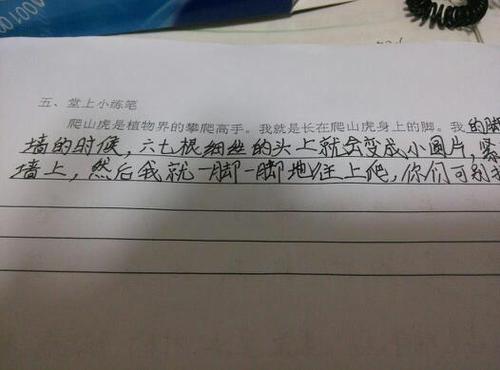 五、堂上小练笔
爬山虎是植物界的攀爬高手。我就是长在爬山虎身上的脚。我的脚
墙的时候，六七根细丝的头上就会变成小圆片，紧
墙上，然后我就一脚一脚地往上爬，你们可别